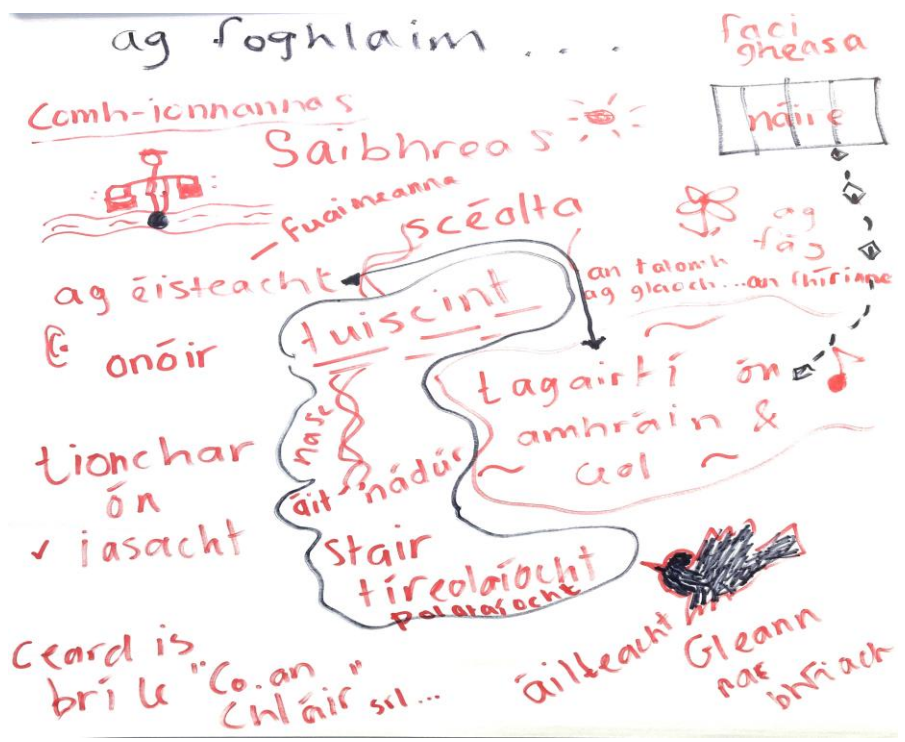 ag foghlaim . . . .
faoi
gheasa
náire
Comh-ionnannas
Saibhreas
fuaimeanna
scéalta
ag éisteacht
tuiscint
ag
fág
an talamh
ag glaoch...an fhírinne
onóir
nasc
tagairtí ón
amhráin &
ceol
tionchar
ón
iasacht
áit
nádúr
stair
tíreolaíocht
polataíocht
ceard is
brí le "Co. an
Chláir" srl...
áilteacht
Gleann
na